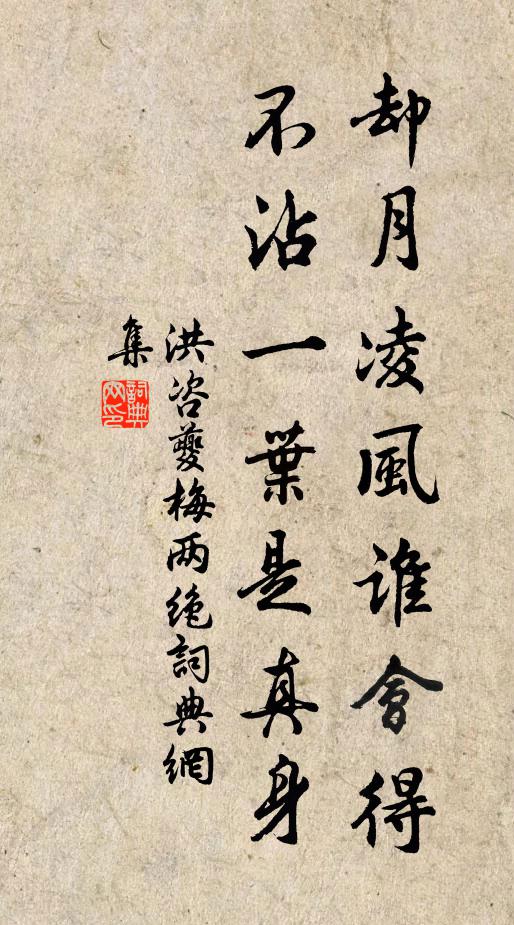 却月凌風誰會得
不沾一葉是真身
洪咨夔梅两绝詞典網
集
詞典网印